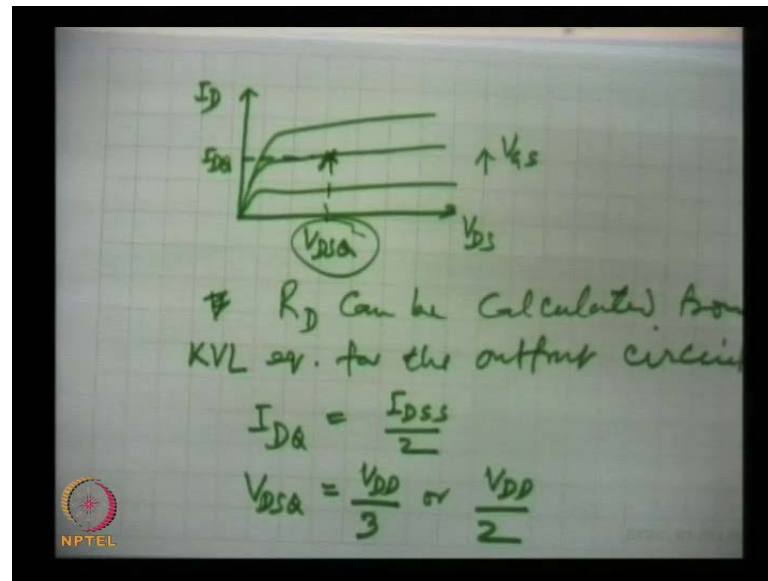 I_D
I_DQ
↑ V_GS
V_DSQ
V_DS
R_D Can be Calculated from
KVL eq. for the output circuit
I_DQ = I_DSS / 2
V_DSQ = V_DD / 3 or V_DD / 2
NPTEL